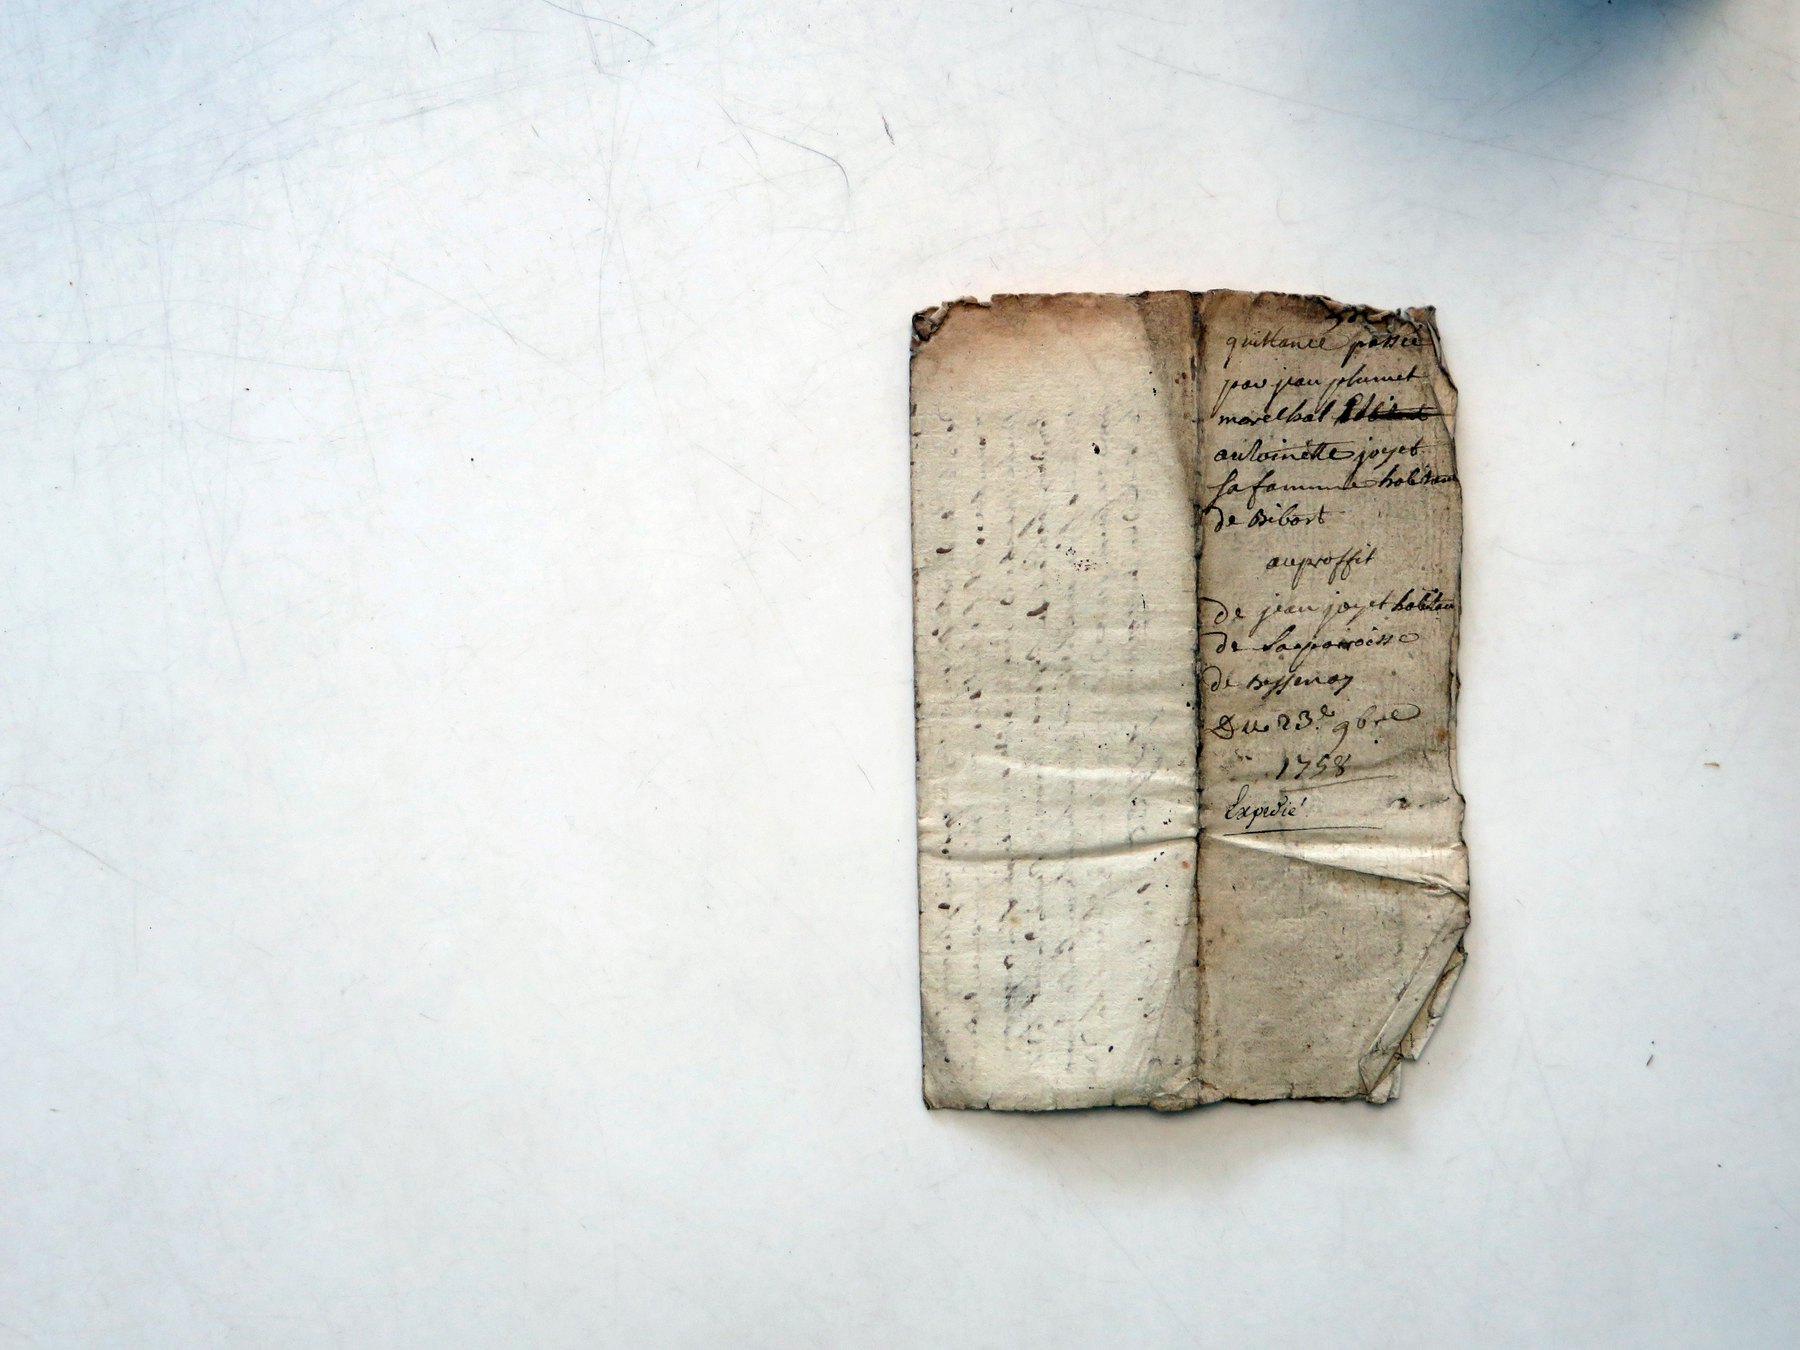 quittance passée
par jean plumet
marelhal
antoinette joyet
sa famme habitans
de Bibort
auproffit
de jean joyet habitan
de la paroisse
de Bessenay
Du 23e 9bre
1758
Expedié